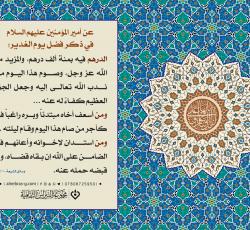 عن أمير المؤمنين عليهم السلام
في ذكر فضل يوم الغدير:
الدرهم فيه بمئة ألف درهم، والمزيد من
الله عز وجل، وصوم هذا اليوم مما
ندب الله تعالى إليه وجعل الجزاء
العظيم كفاءً له عنه ...
ومن أسعف أخاه مبتدئاً وبره راغباً فله
كأجر من صام هذا اليوم وقام ليلته ...
ومن استدان لإخوانه وأعانهم فأنا
الضامن على الله إن بقاه قضاه، وإن
قبضه حمله عنه.